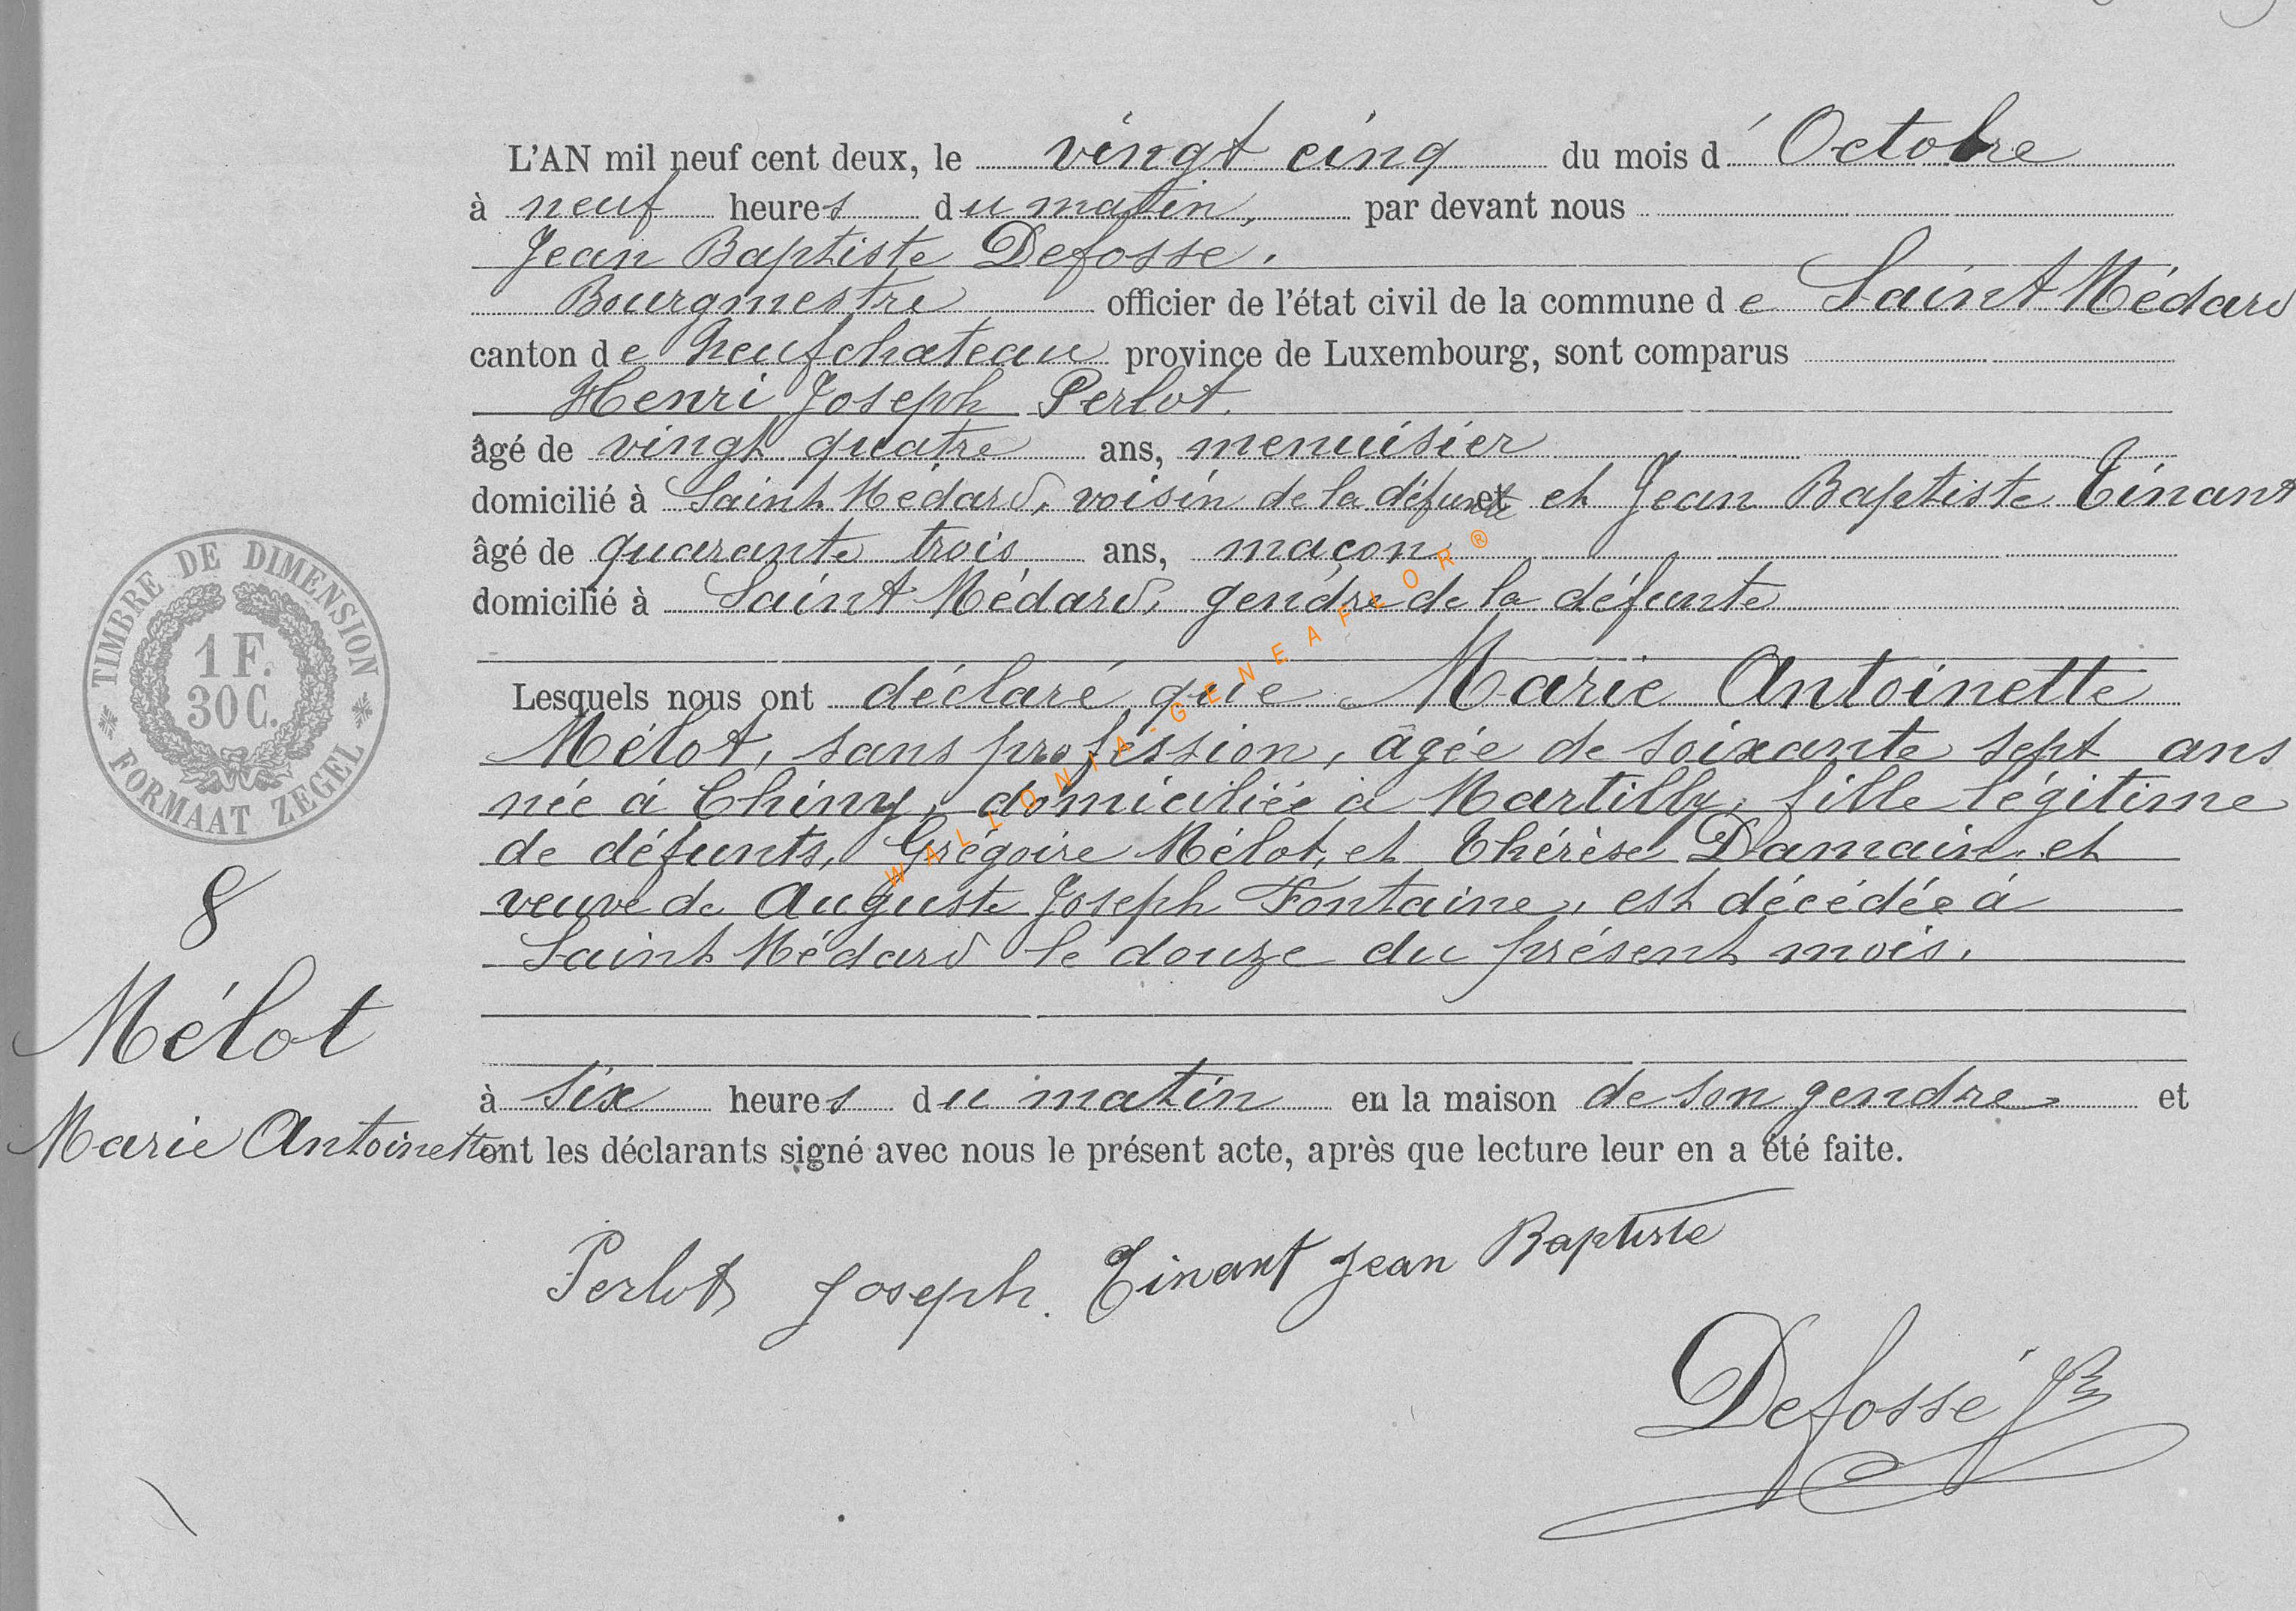 L'AN mil neuf cent deux, le vingt cinq du mois d' Octobre
à neuf heures du matin, par devant nous
Jean Baptiste Defosse.
Bourgmestre officier de l'état civil de la commune de Saint Médard
canton de Neufchateau province de Luxembourg, sont comparus
Henri Joseph Perlot.
âgé de vingt quatre ans, menuisier
domicilié à Saint Médard, voisin de la défunte et Jean Baptiste Tinant
âgé de quarante trois ans, maçon
domicilié à Saint Médard, gendre de la défunte
Lesquels nous ont déclaré que Marie Antoinette
Mélot, sans profession, âgée de soixante sept ans
née à Chiny, domiciliée à Martilly, fille légitime
de défunts, Grégoire Mélot, et Thérèse Damain et
veuve de Auguste Joseph Fontaine, est décédée à
Saint Médard le douze du présent mois.
à six heures du matin en la maison de son gendre et
ont les déclarants signé avec nous le présent acte, après que lecture leur en a été faite.
Perlot Joseph. Tinant Jean Baptiste
Defossé JB
TIMBRE DE DIMENSION
1 F.
30 C.
FORMAAT ZEGEL
8
Mélot
Marie Antoinette
WALLONIA-GENEAFLOR ®